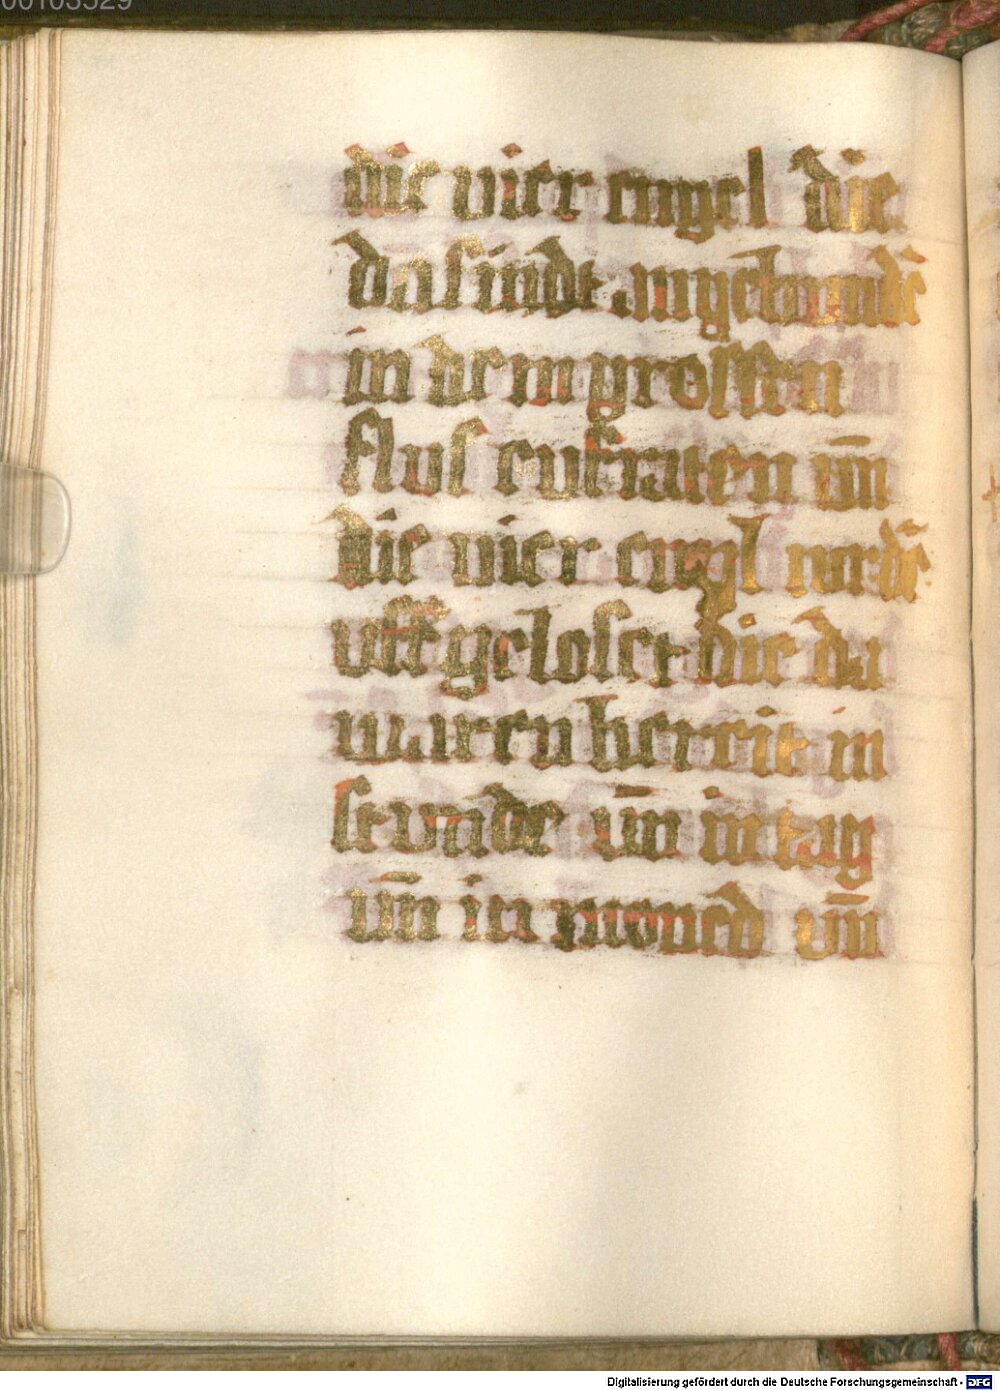 00103529
die vier engel die
da sindt angebundē
in dem grossen
flus eufraten un̄
die vier engel wordē
uff geloset die da
waren bereit in
stunde un̄ in tag
un̄ in moned un̄
Digitalisierung gefördert durch die Deutsche Forschungsgemeinschaft - DFG